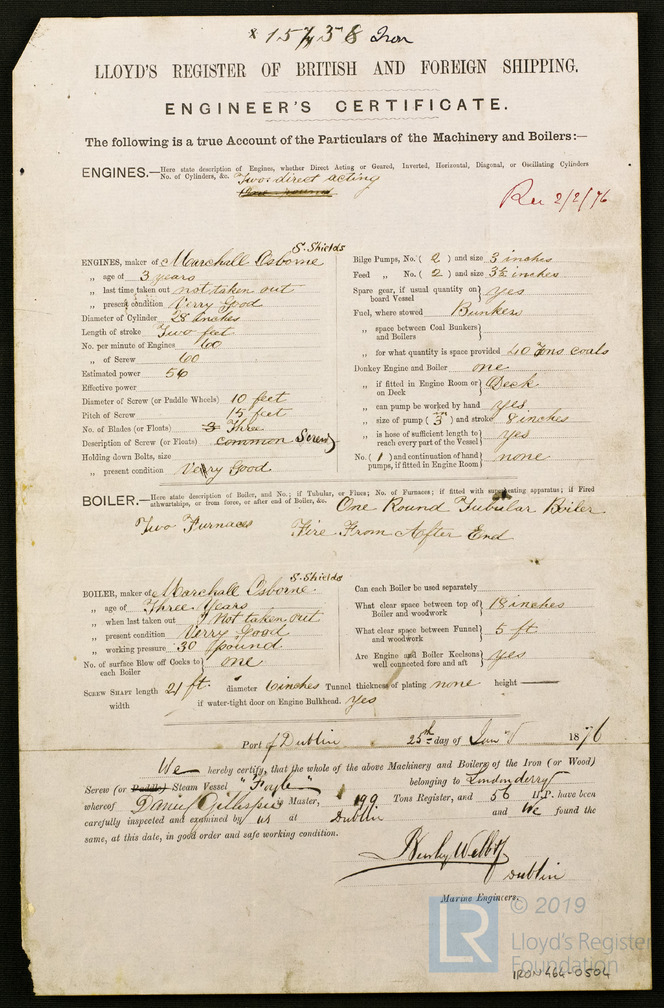 15738 Iron
LLOYD'S REGISTER OF BRITISH AND FOREIGN SHIPPING.
ENGINEER'S CERTIFICATE.
The following is a true Account of the Particulars of the Machinery and Boilers:—
ENGINES.—Here state description of Engines, whether Direct Acting or Geared, Inverted, Horizontal, Diagonal, or Oscillating Cylinders
No. of Cylinders, &c. Two direct acting
Rec 2/2/76
S. Shields
ENGINES, maker of Marchall Osborne
„ age of 3 years
„ last time taken out not taken out
„ present condition Verry good
Diameter of Cylinder 28 inches
Length of stroke Two feet
No. per minute of Engines 60
„ of Screw 60
Estimated power 56
Effective power
Diameter of Screw (or Paddle Wheels) 10 feet
Pitch of Screw 15 feet
No. of Blades (or Floats) 3 Three
Description of Screw (or Floats) common Screw
Holding down Bolts, size
„ present condition Very Good
Bilge Pumps, No. ( 2 ) and size 3 inches
Feed „ No. ( 2 ) and size 3½ inches
Spare gear, if usual quantity on board Vessel } yes
Fuel, where stowed Bunkers
„ space between Coal Bunkers and Boilers }
„ for what quantity is space provided 40 Tons coals
Donkey Engine and Boiler one
„ if fitted in Engine Room or on Deck } Deck
„ can pump be worked by hand yes
„ size of pump ( 3" ) and stroke 8 inches
„ is hose of sufficient length to reach every part of the Vessel } yes
No. ( 1 ) and continuation of hand pumps, if fitted in Engine Room } none
BOILER.—Here state description of Boiler, and No.; if Tubular, or Flues; No. of Furnaces; if fitted with superheating apparatus; if Fired
athwartships, or from fore, or after end of Boiler, &c. One Round Tubular Boiler
Two Furnaces Fire From After End
S. Shields
BOILER, maker of Marchall Osborne
„ age of Three Years
„ when last taken out Not taken out
„ present condition Verry Good
„ working pressure 30 pound
No. of surface Blow off Cocks to each Boiler } one
Can each Boiler be used separately
What clear space between top of Boiler and woodwork } 18 inches
What clear space between Funnel and woodwork } 5 ft
Are Engine and Boiler Keelsons well connected fore and aft } yes
SCREW SHAFT length 21 ft. diameter 6 inches Tunnel thickness of plating none height —
width if water-tight door on Engine Bulkhead. yes
Port of Dublin 25th day of Jany 1876
We hereby certify, that the whole of the above Machinery and Boilers of the Iron (or Wood)
Screw (or Paddle) Steam Vessel "Foyle" belonging to Londonderry
whereof Daniel Gillespie Master, 199 Tons Register, and 56 H.P. have been
carefully inspected and examined by us at Dublin and We found the
same, at this date, in good order and safe working condition.
Dublin
Marine Engineers.
LR
© 2019
Lloyd's Register
Foundation
IRON 464-0504